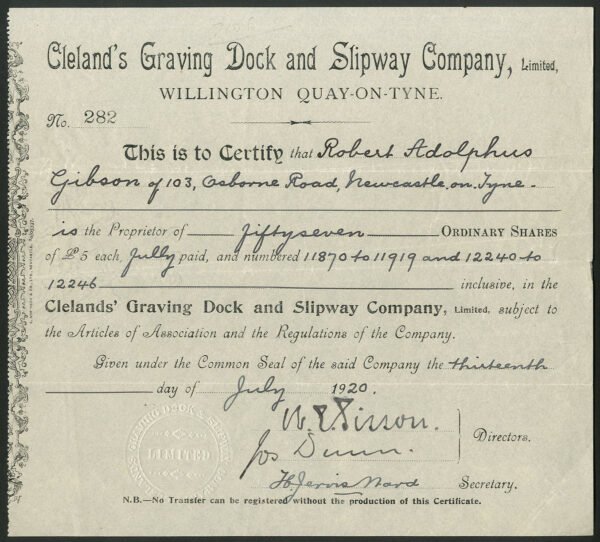 Cleland's Graving Dock and Slipway Company, Limited,
WILLINGTON QUAY-ON-TYNE.
No. 282
This is to Certify that Robert Adolphus
Gibson of 103, Osborne Road, Newcastle on Tyne.
is the Proprietor of fiftyseven ORDINARY SHARES
of £5 each, fully paid, and numbered 11870 to 11919 and 12240 to
12246 inclusive, in the
Clelands' Graving Dock and Slipway Company, Limited, subject to
the Articles of Association and the Regulations of the Company.
Given under the Common Seal of the said Company the thirteenth
day of July 1920.
Sisson.
Jos Dunn.
Directors.
H. Jervis Ward Secretary.
LIMITED
N.B.—No Transfer can be registered without the production of this Certificate.